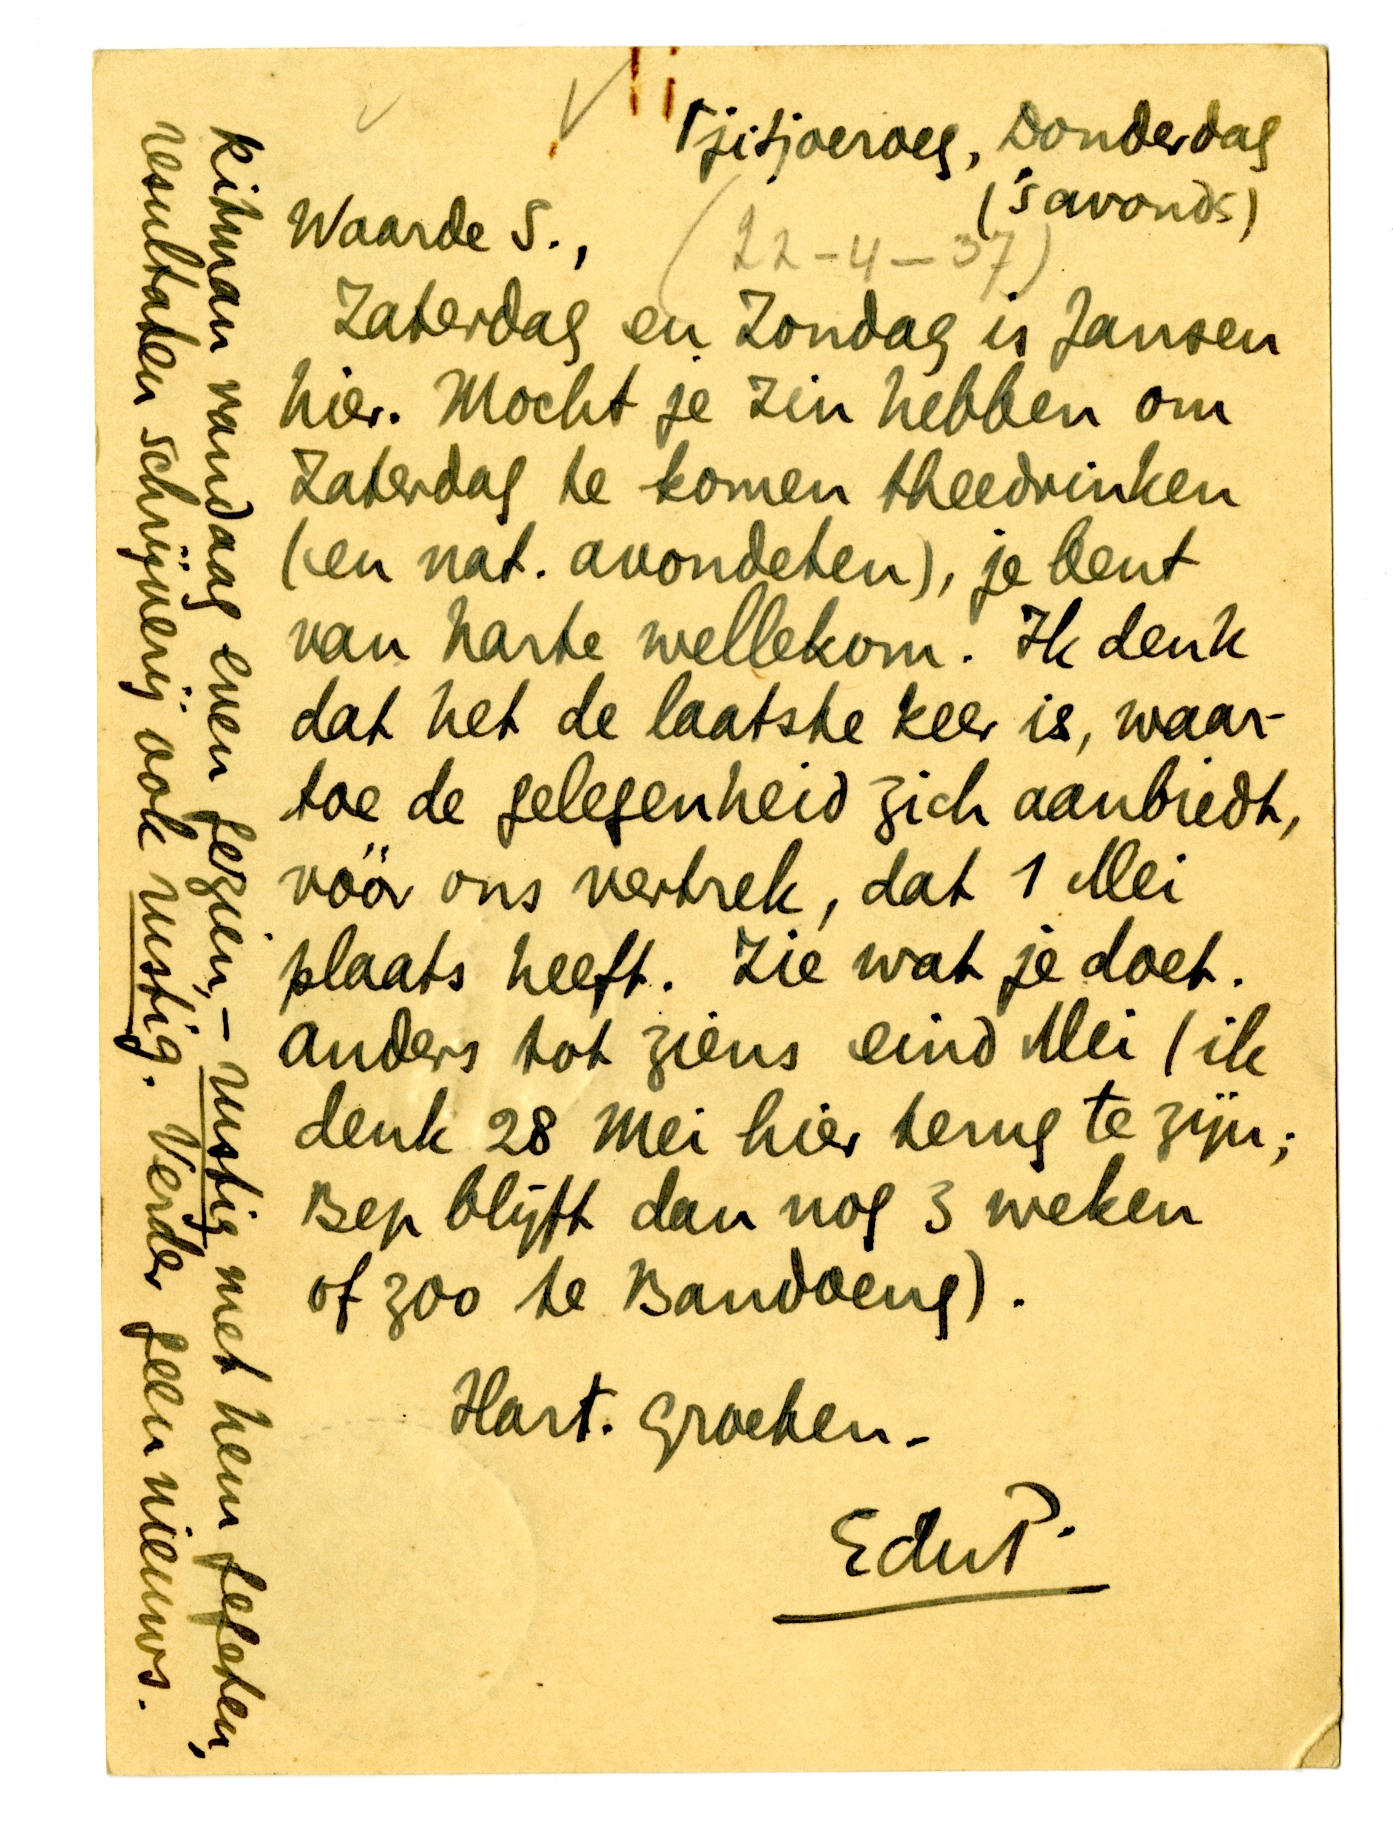 Tjitjoeroeg, Donderdag
('s avonds)
(22-4-37)
Waarde S.,
Zaterdag en Zondag is Jansen
hier. Mocht je zin hebben om
Zaterdag te komen theedrinken
(en nat. avondeten), je bent
van harte wellekom. Ik denk
dat het de laatste keer is, waar-
toe de gelegenheid zich aanbiedt,
vóór ons vertrek, dat 1 Mei
plaats heeft. Zie wat je doet.
Anders tot ziens eind Mei (ik
denk 28 Mei hier terug te zijn;
Bep blijft dan nog 3 weken
of zoo te Bandoeng).
Hart. groeten.
EduP.
Kitman vandaag even gezien, – rustig met hem gegeten,
resultaten schrijverij ook rustig. Verder geen nieuws.